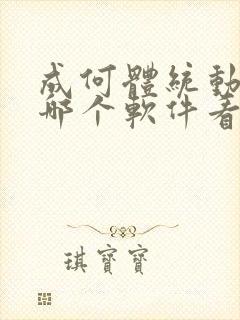 成何體統動
哪个軟件看
琪寶寶